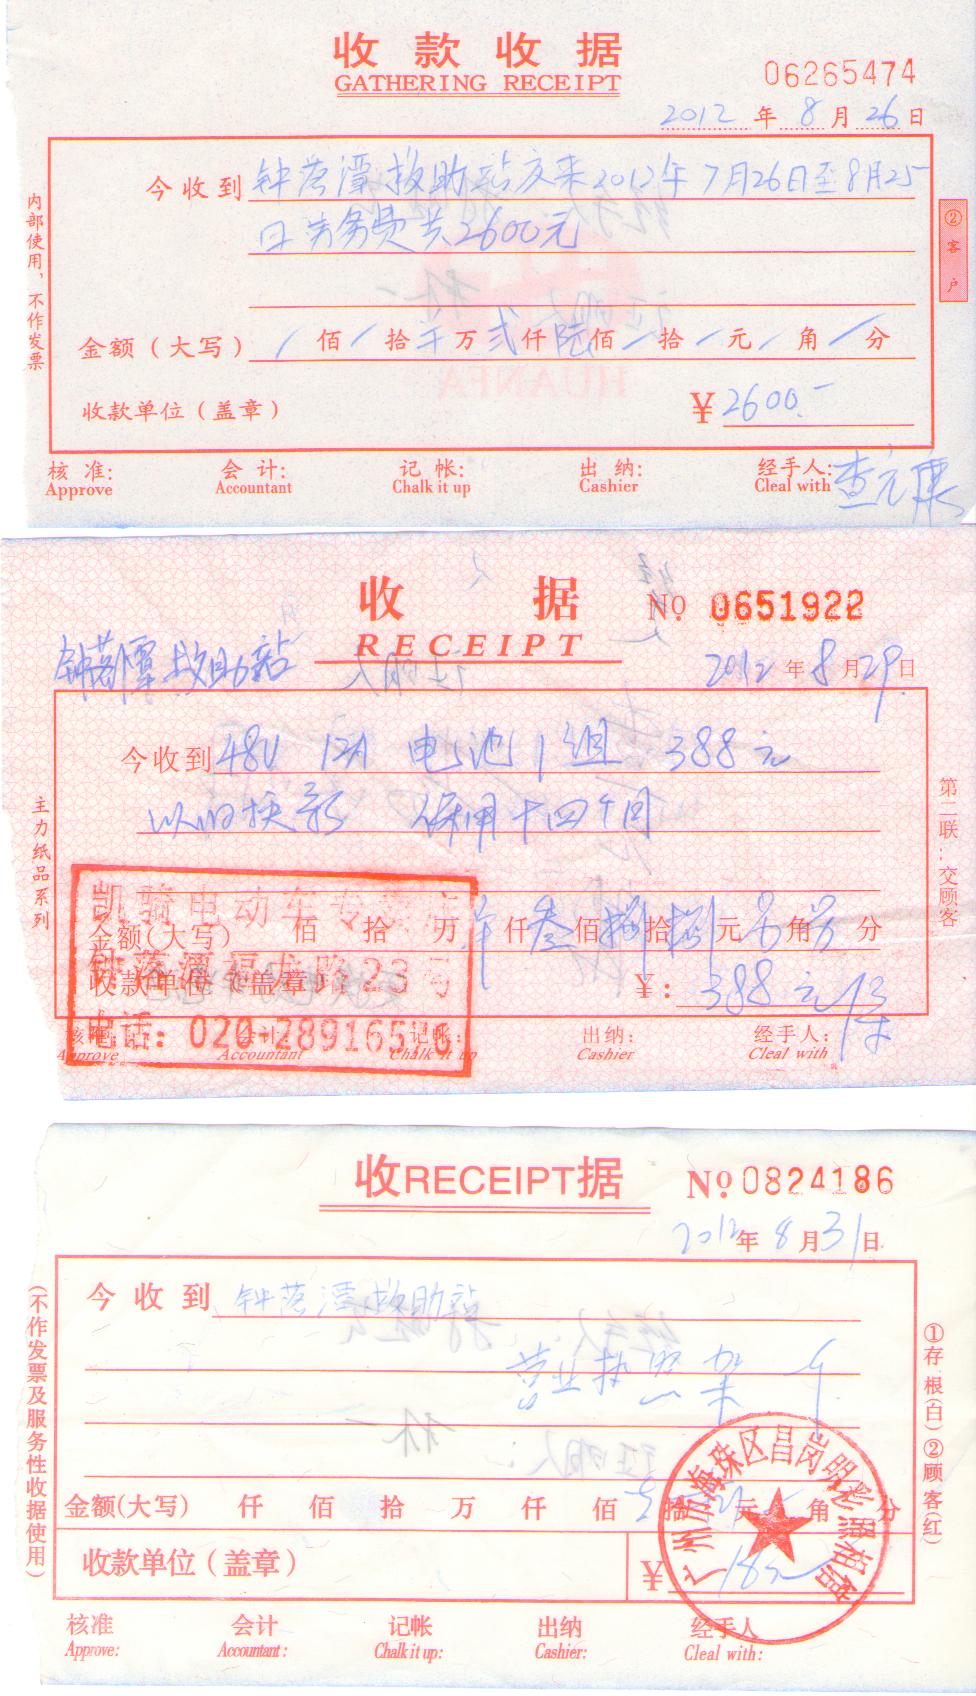 收款收据
GATHERING RECEIPT
06265474
2012年8月26日
今收到 钟落潭救助站交来2012年7月26日至8月25
日劳务费共2600元
金额（大写） / 佰 / 拾 万 贰仟陆佰 / 拾 / 元 / 角 / 分
收款单位（盖章） ¥2600.-
核准: 会计: 记帐: 出纳: 经手人: 查元康
Approve Accountant Chalk it up Cashier Cleal with
内部使用，不作发票
②客户
HUANFA
收据
RECEIPT
No 0651922
钟落潭救助站 2012年8月29日
今收到 48V 12A 电池1组 388元
以旧换新 保用十四个月
金额(大写) 佰 拾 万 仟叁佰捌拾捌元 角 分
收款单位（盖章） ¥: 388元
核准: 会计: 记帐: 出纳: 经手人:
Approve Accountant Chalk it up Cashier Cleal with
主力纸品系列
第二联:交顾客
凯骑电动车专
钟落潭福龙路23号
电话: 020-28916516
收RECEIPT据
No 0824186
2012年8月31日
今收到 钟落潭救助站
营业执照架
金额(大写) 仟 佰 拾 万 仟 佰 拾 元 角 分
收款单位（盖章） ¥
核准 会计 记帐 出纳 经手人
Approve: Accountant: Chalk it up: Cashier: Cleal with:
(不作发票及服务性收据使用)
①存根(白)②顾客(红)
广州市海珠区昌岗明彩照相馆